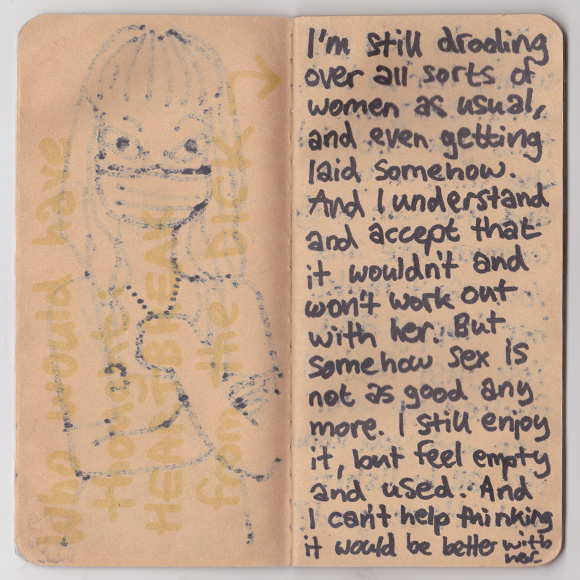 Who would have
thought
HEARTBREAK
from the DICK
I'm still drooling
over all sorts of
women as usual,
and even getting
laid somehow.
And I understand
and accept that
it wouldn't and
won't work out
with her. But
somehow sex is
not as good any
more. I still enjoy
it, but feel empty
and used. And
I can't help thinking
it would be better with
her.